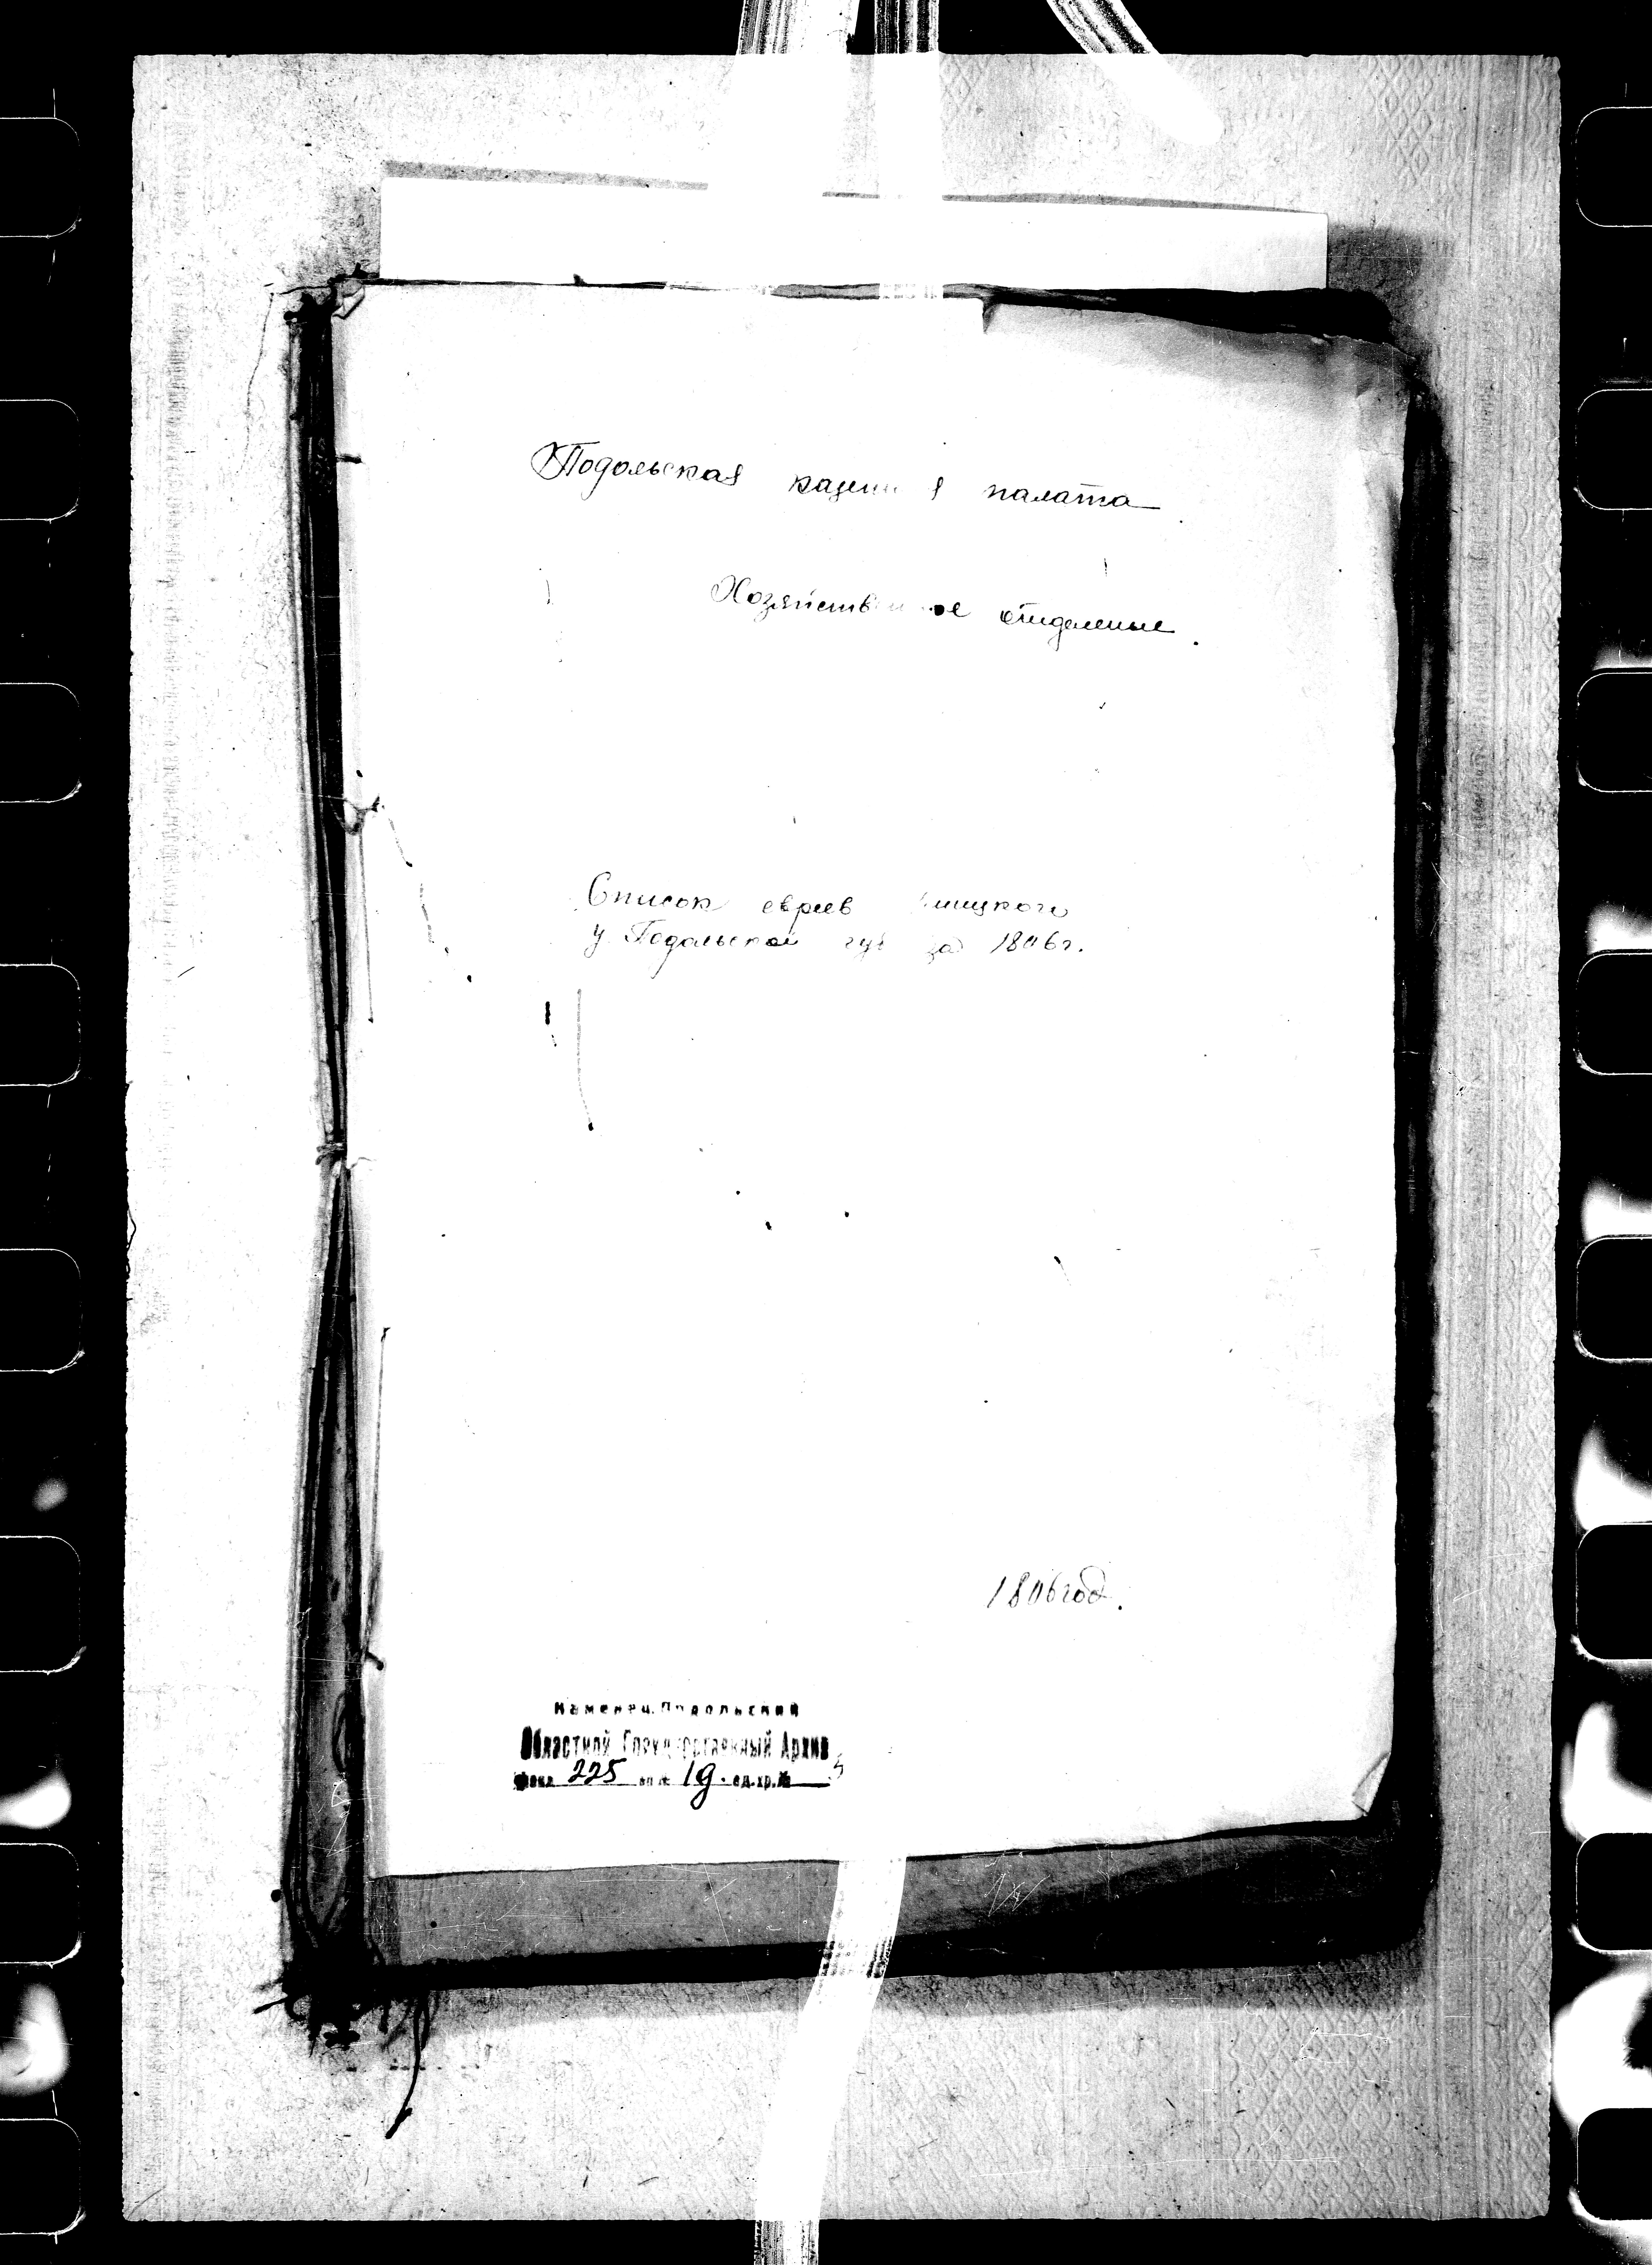 Подольская казенная палата
Хозяйственное отделение.
Список евреев
у. Подольской губ за 1806г.
1806 год.
Каменец-Подольский
Областной Государственный Архив
фонд 225 оп № 1д. ед.хр.№